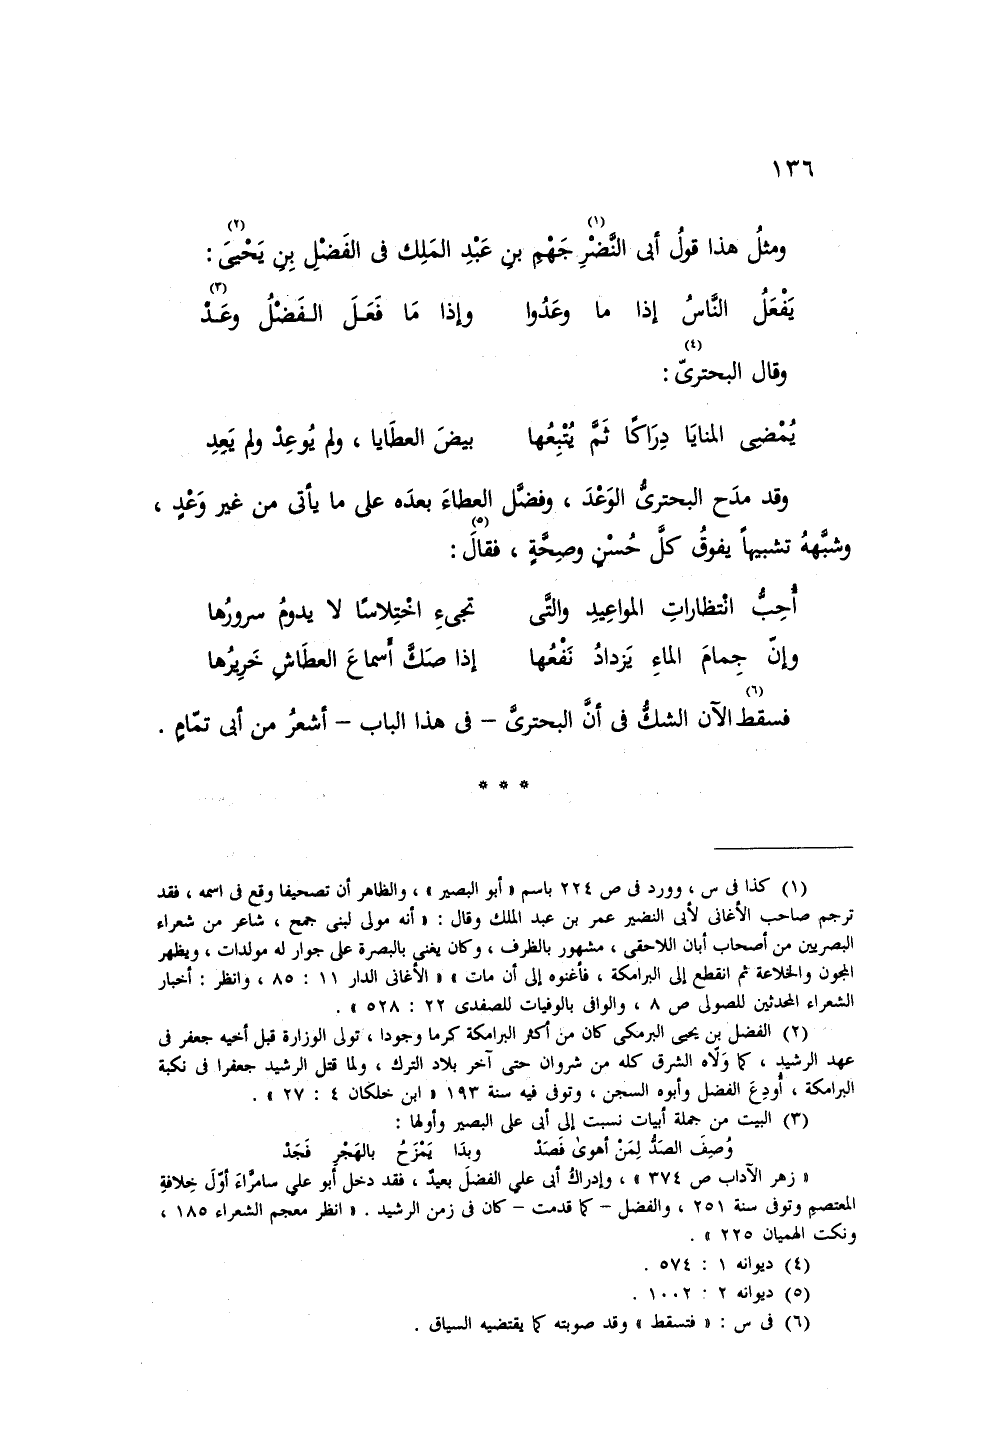 ١٣٦
ومثلُ هذا قولُ أبى النَّضْرِ(١) جَهْمِ بنِ عَبْدِ المَلِك فى الفَضْلِ بِنِ يَحْيىَ(٢) :
يَفْعَلُ النَّاسُ إذا ما وعَدُوا وإذا مَا فَعَلَ الفَضْلُ وعَدْ(٣)
وقال البحترىّ(٤) :
يُمْضِى المنايَا دِرَاكًا ثَمَّ يُتْبِعُها بيضَ العطَايا ، ولم يُوعِدْ ولم يَعِدِ
وقد مدَح البحترىُّ الوَعْدَ ، وفضَّل العطاءَ بعدَه على ما يأتى من غير وَعْدٍ ،
وشبَّههُ تشبيهاً يفوقُ كلَّ حُسْنٍ وصِحَّةٍ ، فقالَ(٥) :
أُحِبُّ انْتظاراتِ المواعِيدِ والتَّى تجىءِ اخْتِلاسًا لا يدومُ سرورُها
وإنّ جِمامَ الماءِ يَزدادُ نَفْعُها إذا صَكَّ أَسماعَ العطَاشِ خَرِيرُها
فسقط(٦) الآن الشكُّ فى أنَّ البحترىَّ – فى هذا الباب – أشعرُ من أبى تمّامٍ .
* * *
(١) كذا فى س ، وورد فى ص ٢٢٤ باسم « أبو البصير » ، والظاهر أن تصحيفا وقع فى اسمه ، فقد
ترجم صاحب الأغانى لأبى النضير عمر بن عبد الملك وقال : « أنه مولى لبنى جمح ، شاعر من شعراء
البصريين من أصحاب أبان اللاحقى ، مشهور بالظرف ، وكان يغنى بالبصرة على جوار له مولدات ، ويظهر
المجون والخلاعة ثم انقطع إلى البرامكة ، فأغنوه إلى أن مات » « الأغانى الدار ١١ : ٨٥ ، وانظر : أخبار
الشعراء المحدثين للصولى ص ٨ ، والوافى بالوفيات للصفدى ٢٢ : ٥٢٨ » .
(٢) الفضل بن يحيى البرمكى كان من أكثر البرامكة كرما وجودا ، تولى الوزارة قبل أخيه جعفر فى
عهد الرشيد ، كما وَلَّاه الشرق كله من شروان حتى آخر بلاد الترك ، ولما قتل الرشيد جعفرا فى نكبة
البرامكة ، أُودِعَ الفضل وأبوه السجن ، وتوفى فيه سنة ١٩٣ « ابن خلكان ٤ : ٢٧ » .
(٣) البيت من جملة أبيات نسبت إلى أبى على البصير وأولها :
وُصِفَ الصَدُّ لِمَنْ أهوىٰ فَصَدْ وبدَا يَمْزَحُ بالهَجْرِ فَجَدْ
« زهر الآداب ص ٣٧٤ » ، وإدراكُ أبى علي الفضلَ بعيدٌ ، فقد دخل أبو علي سامرَّاءَ أوّلَ خِلافةِ
المعتصمِ وتوفى سنة ٢٥١ ، والفضل – كما قدمت – كان فى زمن الرشيد . « انظر معجم الشعراء ١٨٥ ،
ونكت الهميان ٢٢٥ » .
(٤) ديوانه ١ : ٥٧٤ .
(٥) ديوانه ٢ : ١٠٠٢ .
(٦) فى س : « فتسقط » وقد صوبته كما يقتضيه السياق .